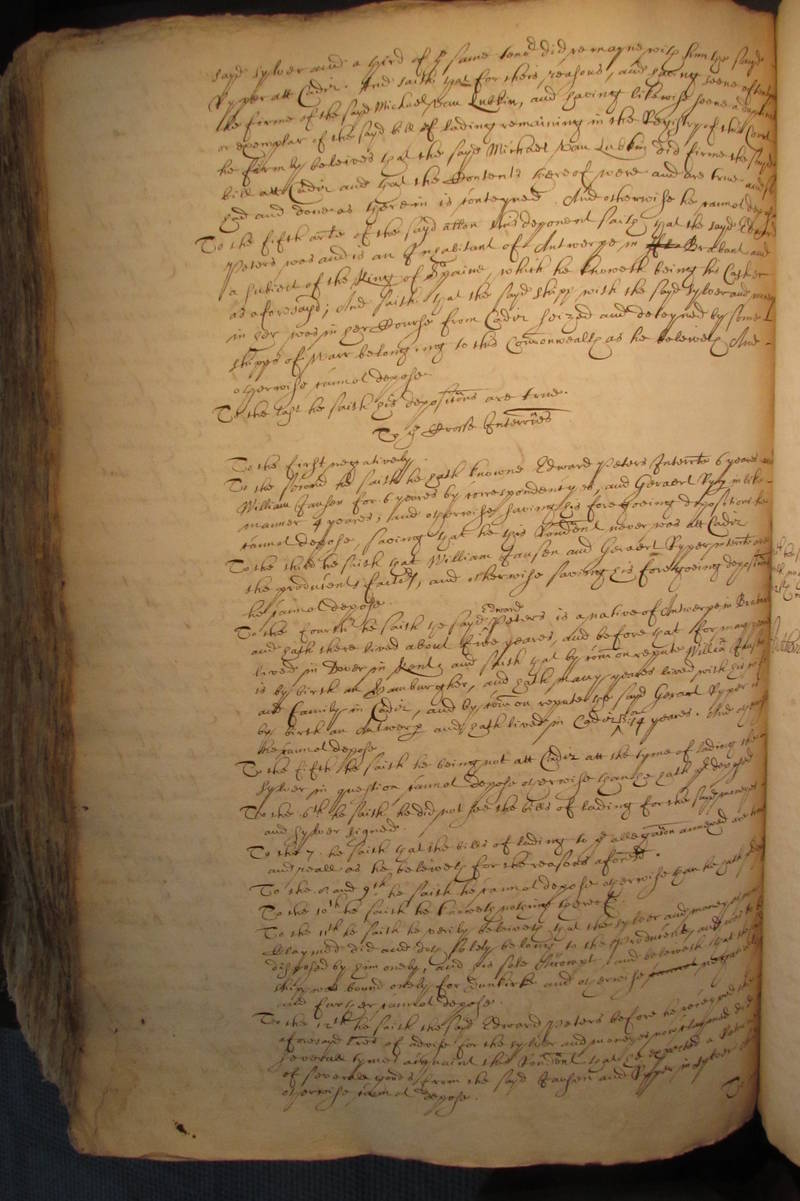 sayd sylver and a third of the same tenor did remayne with him the sayd
Rypper att Cadiz. And saith that for these reasons, and having seene often
the firme of the sayd Michael Van Lubkin, and having likewise seene a
or exemplar of the sayd bill of lading remaining in the Registry of this Court
he firmly beleives that the sayd Michael Van Lubkin did firme the sayd
bill att Cadiz and that the Contents thereof were and are true and
had and done as therein is conteyned. And otherwise he cannot depose
To the fifth arle of the sayd allon this deponent saith that the sayd Edward
Peters was and is an Inhabitant of Antwerpe in Brabant and
a subiect of the King of Spaine, which he knoweth being his Casher
as aforesayd; And saith that the sayd shipp with the sayd sylver and money
in her was in her Course from Cadiz seized and deteyned by some
shipps of Warr belonging to this Commonwealth as he beleiveth And
otherwise cannot depose.
To the last he saith his depositions are true.
To ye Crosse Interries
To the first negatively.
To the second he saith he hath knowne Edward Peters Interrate 6 yeares and
William Jansen for 6 yeares by correspondency, and Geraert Rypper in like
manner 4 yeares, and otherwise saving his foregoeing depositions he
cannot depose, saving that he this Rendent never was att Cadiz
To the third he saith that William Jansen and Geraert Rypper interrate are
the producents factors, and otherwise saving his foregoeing deposition
he cannot depose.
To the fourth he saith the sayd Edward Peters is a native of Antwerpe in Brabant
and hath there lived about five yeares, and before that for many yeares
lived in Dover in Kent, and saith that by common repute William Jansen
is by birth an Hamburgher, and hath many yeares lived with his
and family in Cadiz, and by common repute the sayd Gerart Rypper is
by birth an Antwerper and hath lived in Cadiz 4 yeares. And otherwise
he cannot depose
To the fifth he saith he being not att Cadiz att the tyme of lading the
sylver in question cannot depose otherwise than he hath deposed
To the 6th he saith he did not see the bills of lading for the sayd moneyes
and sylver signed.
To the 7 he saith that the bills of lading to ye allegation annexed are true
and reall as he beleiveth for the reasons aforesd.
To the 8 and 9th he saith he cannot depose otherwise than he hath
To the 10th he saith he knoweth nothing thereof.
To the 11th he saith he verily beleiveth that the sylver and moneyes
Claymed did and doth solely belong to the Producent, and was to be
disposed by him onely, and his sole Accompt, and beleiveth that the
shipp was bound onely for Dunkirke and otherwise negatively
and further cannot depose.
To the 12th he saith the sayd Edward Peters before he received the
aforesayd lres of advise for the sylver and moneyes now claymed did
severall tymes acquaint this Rendent that he expected a
of severall goods from the sayd Jansen and Rypper in sylver
otherwise cannot depose.
To